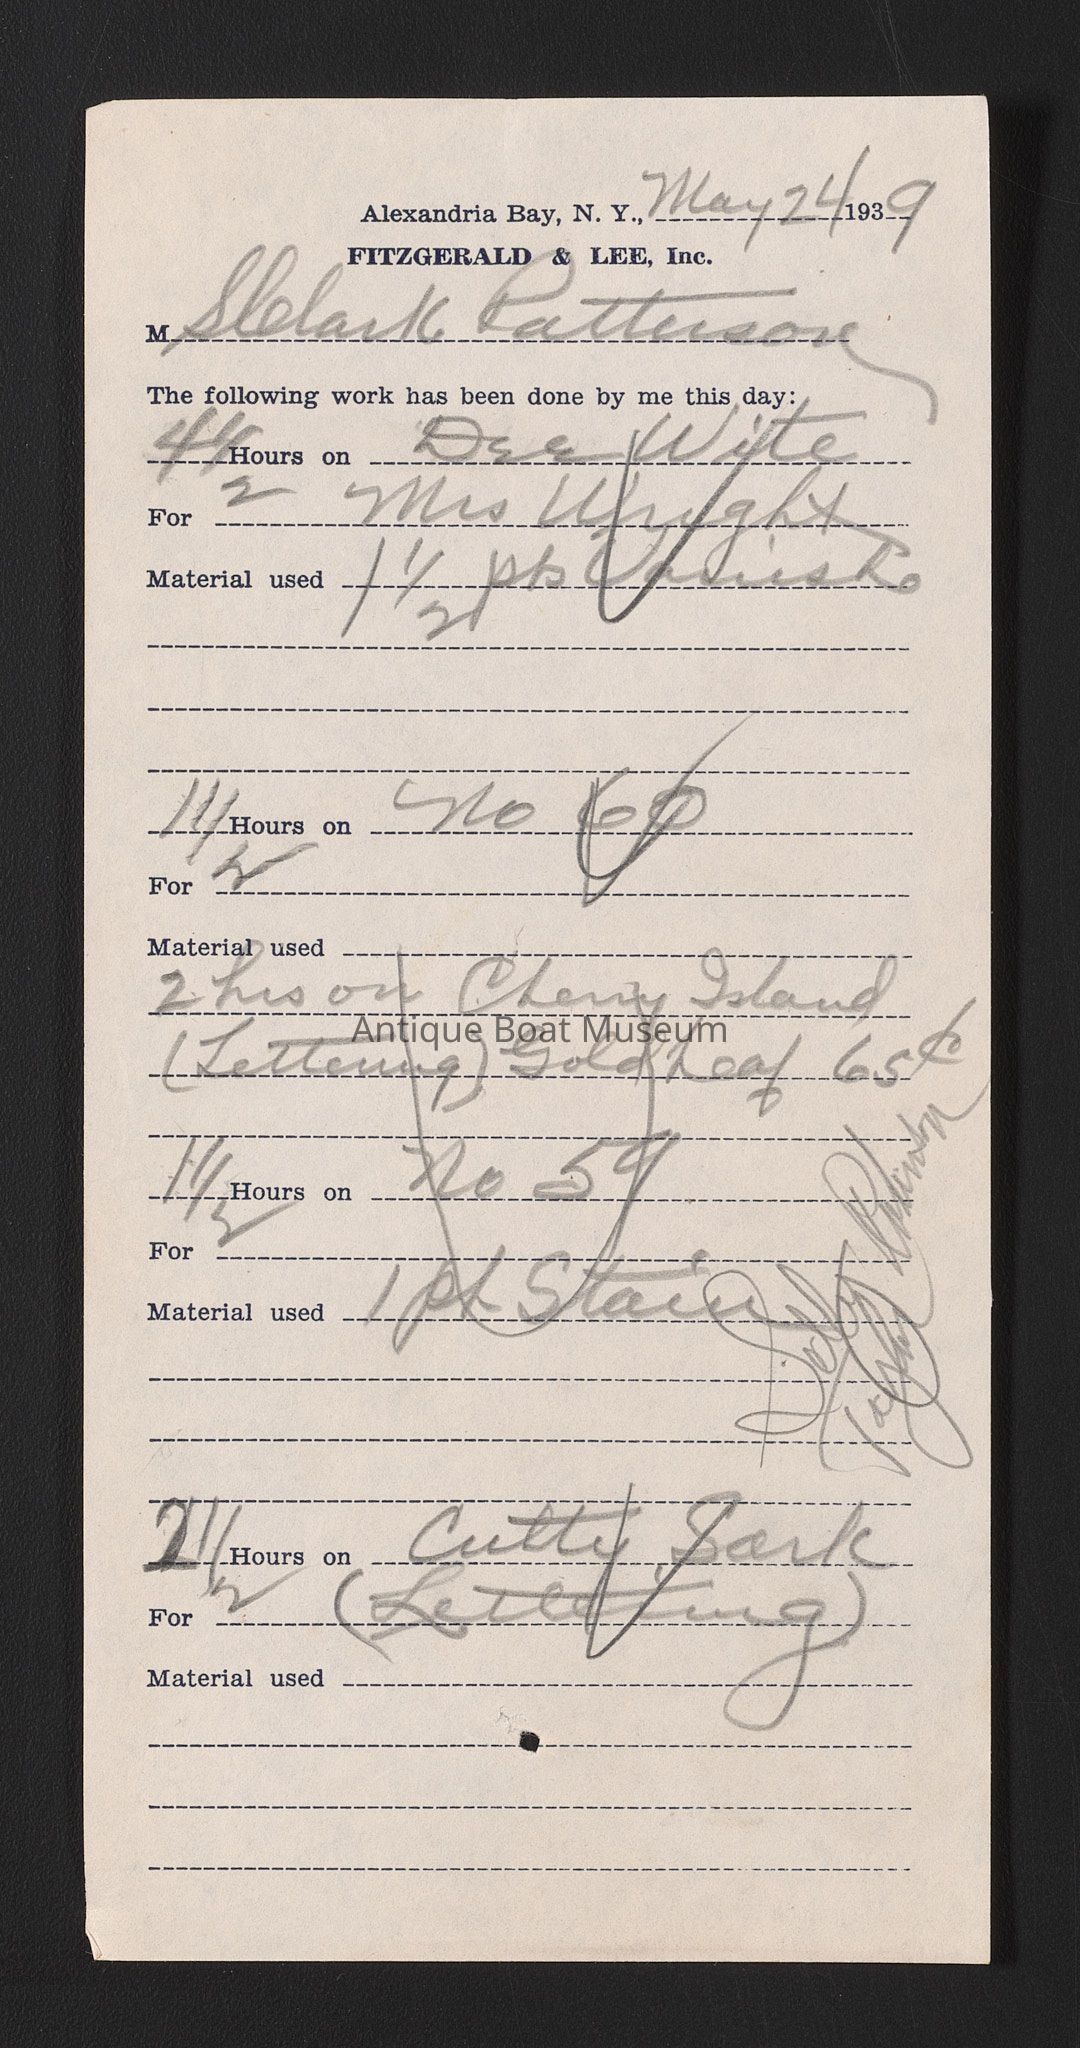 Alexandria Bay, N. Y., May 24 1939
FITZGERALD & LEE, Inc.
M SClark Patterson
The following work has been done by me this day:
4 1/2 Hours on Dee Wite
For Mrs Wright
Material used 1 1/2 pts Varnish
1 1/2 Hours on No 60
For
Material used
2 hrs on Cherry Island
Antique Boat Museum
(Lettering) Gold Leaf 65¢
1 1/2 Hours on No 59
For
Material used 1 pt Stain
2 1/2 Hours on Cutty Sark
For (Lettering)
Material used